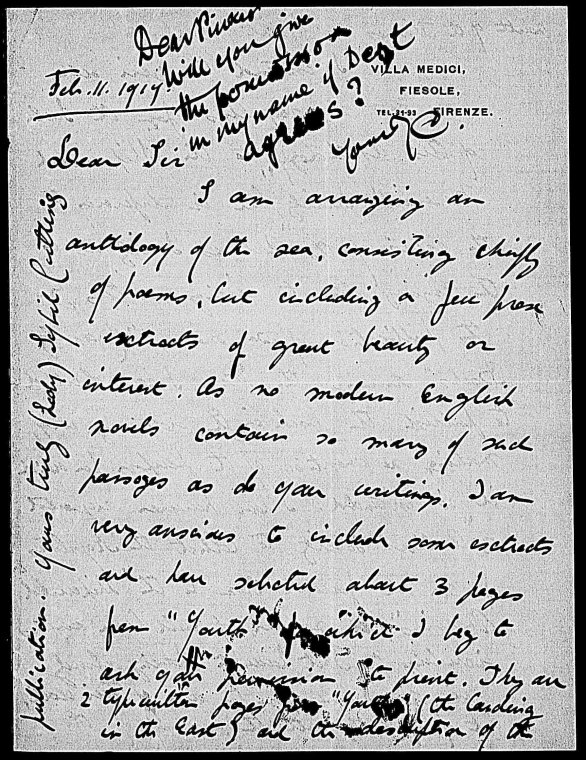 Dear Pinker
Will you give
the permission
in my name if Dent
agrees?
Yours JC.
Feb. 11. 1919.
VILLA MEDICI,
FIESOLE,
TEL. 21-93 FIRENZE.
Dear Sir
I am arranging an
anthology of the sea, consisting chiefly
of poems, but including a few prose
extracts of great beauty or
interest. As no modern English
novels contain so many of such
passages as do your writings, I am
very anxious to include some extracts
and have selected about 3 pages
from "Youth" for which I beg to
ask your permission to print. They are
2 typewritten pages from "Youth" (the landing
in the East) and the description of the
publication Yours truly (Lady) Sybil Cutting